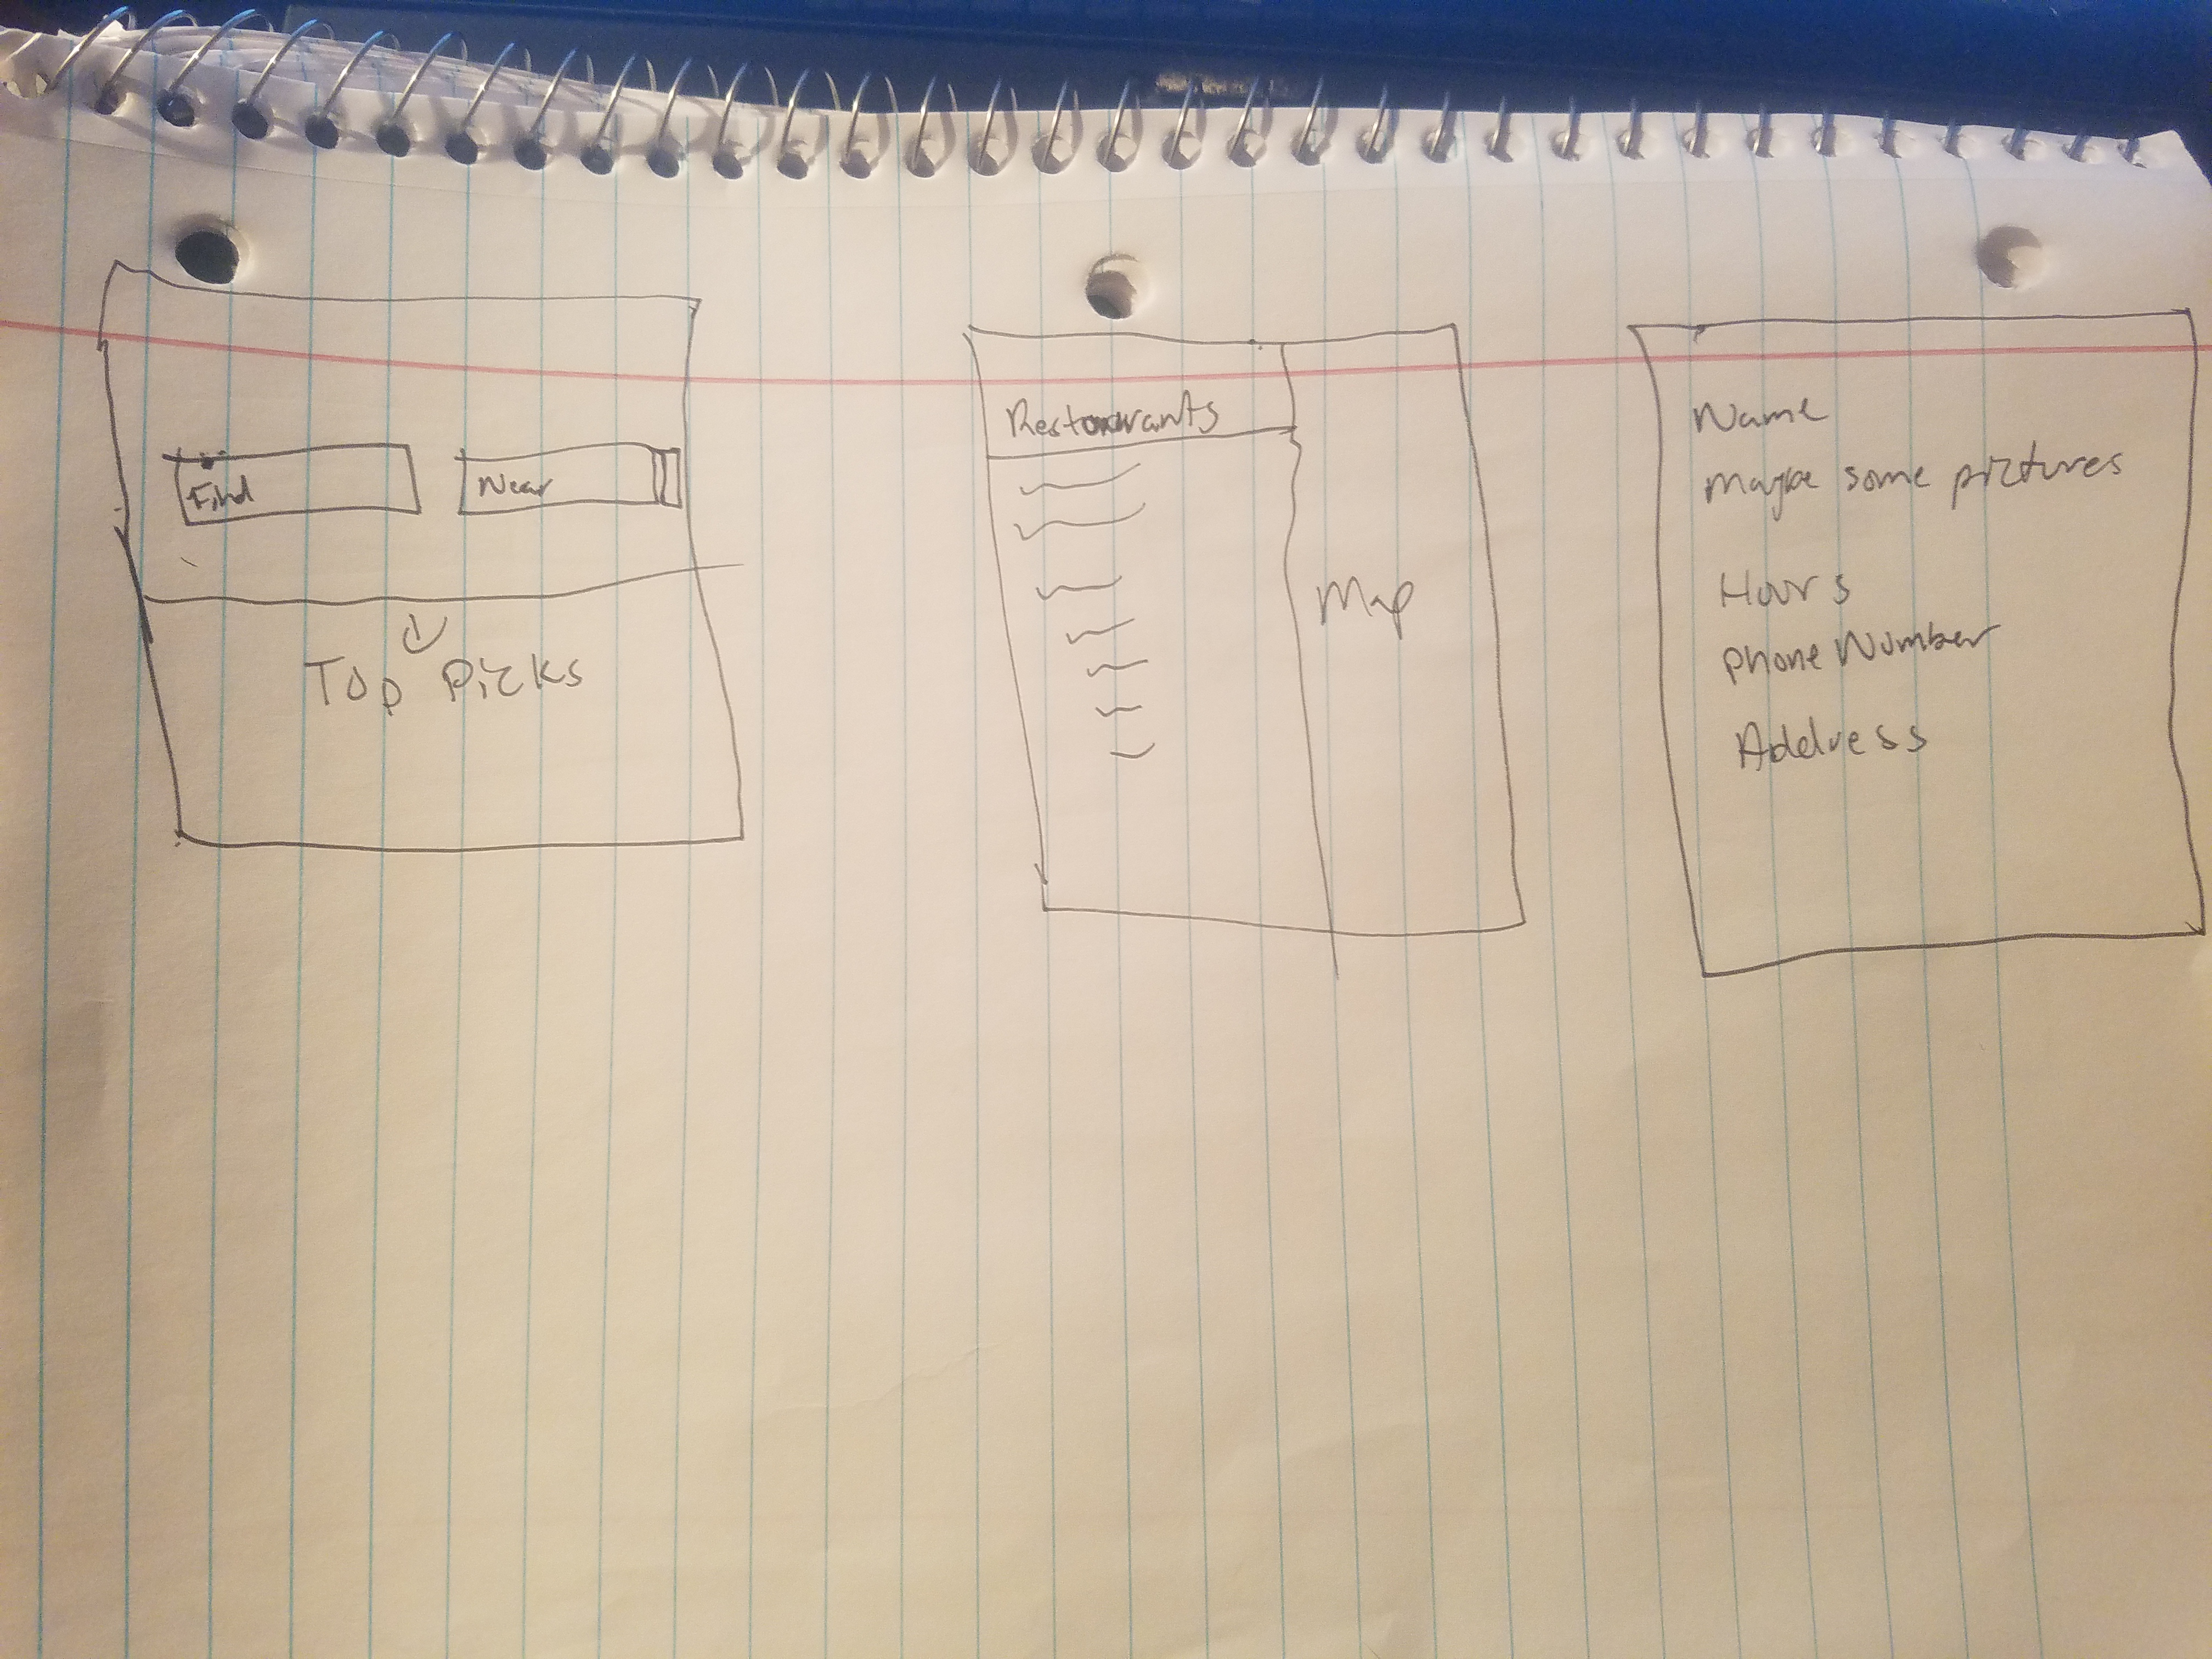 Find
Near
Top Picks
Restaurants
Map
Name
Maybe some pictures
Hours
Phone Number
Address